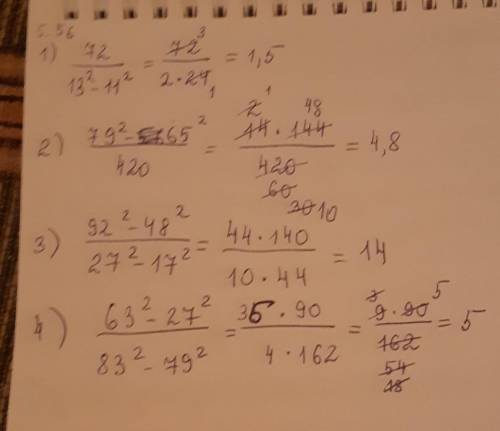 5.56
1) 72 / (13² - 11²) = 72³ / (2 · 24₁) = 1,5
2) (79² - 65²) / 420 = (14 · 144) / 420 = 4,8
2 1 48
60
30 10
3) (92² - 48²) / (27² - 17²) = (44 · 140) / (10 · 44) = 14
4) (63² - 27²) / (83² - 79²) = (36 · 90) / (4 · 162) = (9 · 90) / 162 = 5
5
54
18